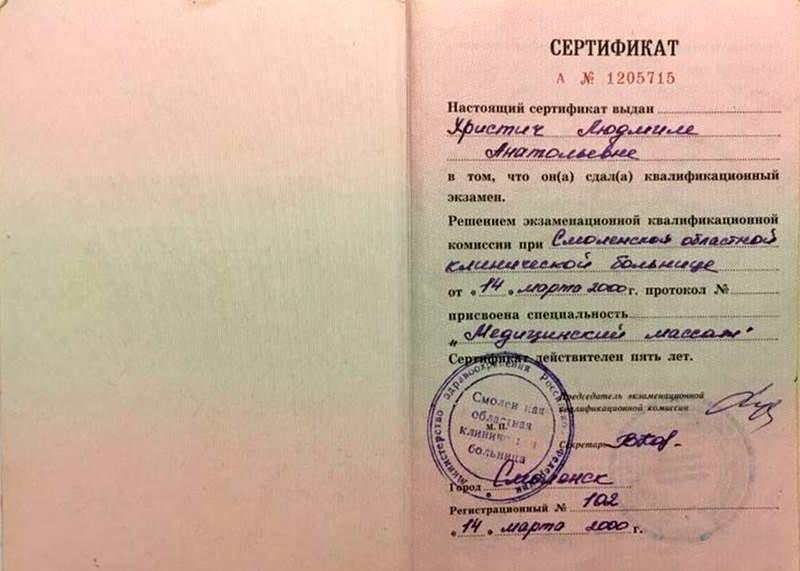 СЕРТИФИКАТ
А № 1205715
Настоящий сертификат выдан
Христич Людмиле
Анатольевне
в том, что он(а) сдал(а) квалификационный
экзамен.
Решением экзаменационной квалификационной
комиссии при Смоленской областной
клинической больнице
от «14» марта 2000 г. протокол №
присвоена специальность
„Медицинский массаж"
Сертификат действителен пять лет.
Председатель экзаменационной
квалификационной комиссии
Министерство здравоохранения Российской Федерации
Смоленская
областная
М. П.
клиническая
больница
Секретарь
Город Смоленск
Регистрационный № 102
«14» марта 2000 г.